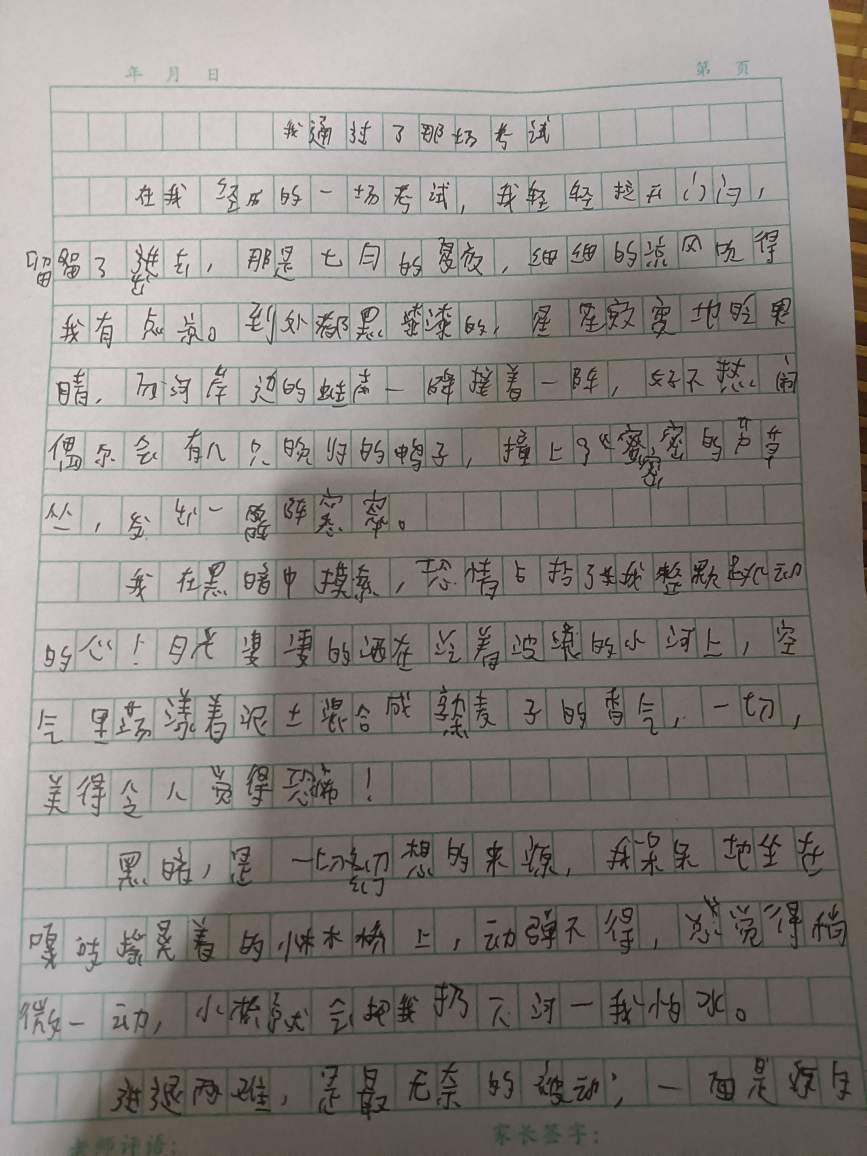 年 月 日 第 页
我通过了那场考试
在我经历的一场考试，我轻轻拉开门闩，
溜了出去，那是七月的夏夜，细细的凉风吹得
我有点凉。到处都黑漆漆的，星星地眨
睛，而河岸边的蛙声一阵接着一阵，好不热闹
偶尔会有几只晚归的鸭子，撞上了密密的芦苇
丛，发出一阵窸窣。
我在黑暗中摸索，恐惧占据了我整颗跳动
的心！月光凄凄的洒在泛着波澜的小河上，空
气里荡漾着泥土混合成熟麦子的香气，一切，
美得令人觉得恐怖！
黑暗，是一切幻想的来源，我呆呆地坐在
嘎吱摇晃着的小木桥上，动弹不得，总觉得稍
微一动，小桥就会把我扔下河一我怕水。
进退两难，是最无奈的被动；一面是
老师评语： 家长签字：